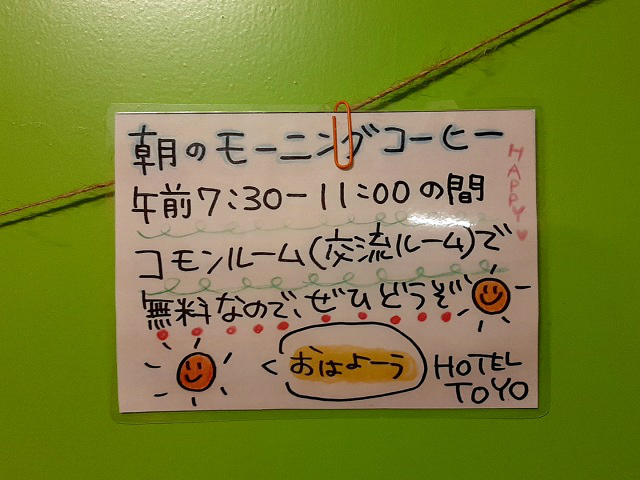 朝のモーニングコーヒー
午前7:30-11:00の間
コモンルーム(交流ルーム)で
無料なので、ぜひどうぞ
HAPPY♥
おはよーう
HOTEL
TOYO